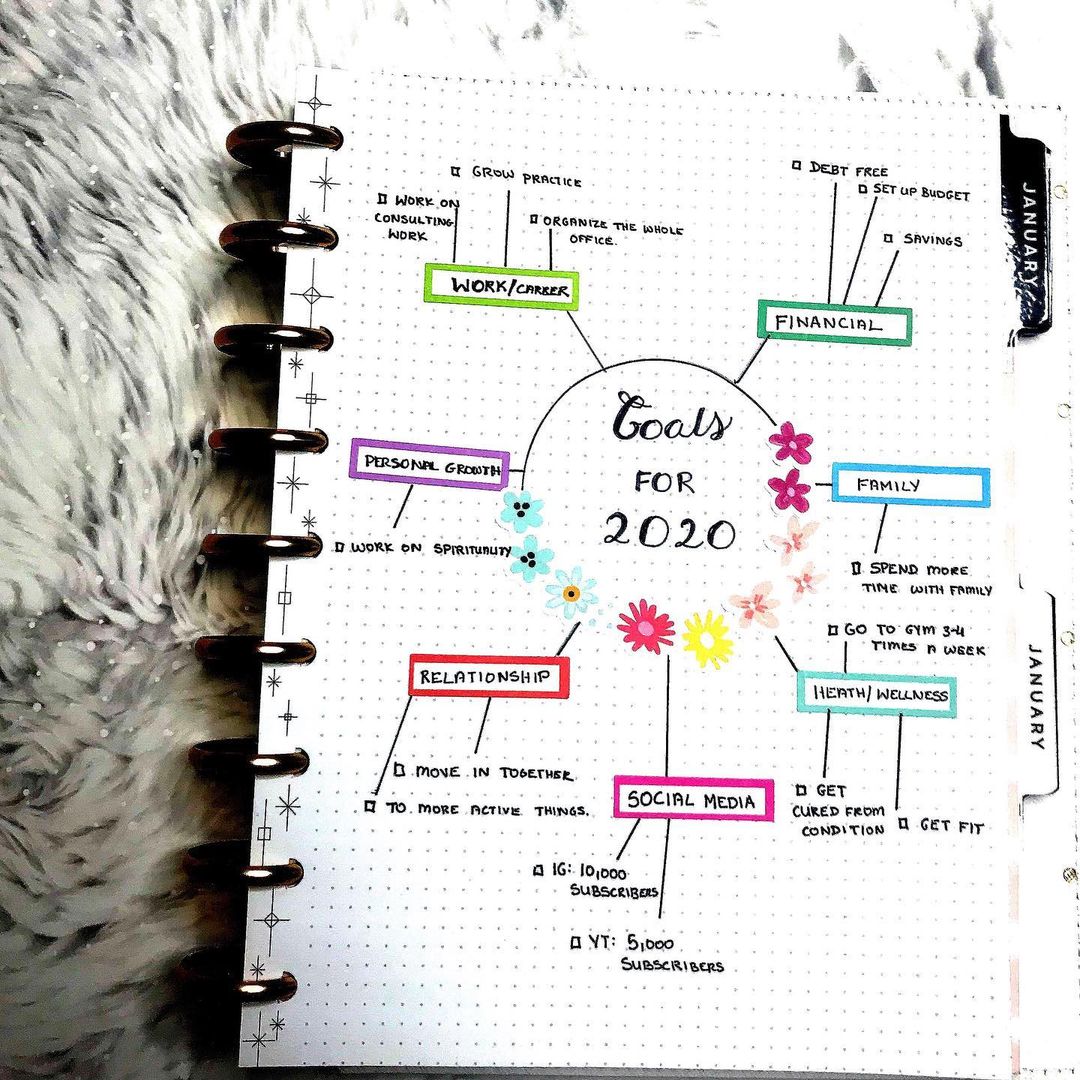 Goals
FOR
2020
WORK/CAREER
GROW PRACTICE
WORK ON
CONSULTING
WORK
ORGANIZE THE WHOLE
OFFICE.
FINANCIAL
DEBT FREE
SET UP BUDGET
SAVINGS
PERSONAL GROWTH
WORK ON SPIRITUALITY
FAMILY
SPEND MORE
TIME WITH FAMILY
RELATIONSHIP
MOVE IN TOGETHER
TO MORE ACTIVE THINGS.
HEATH/WELLNESS
GO TO GYM 3-4
TIMES A WEEK
GET
CURED FROM
CONDITION
GET FIT
SOCIAL MEDIA
IG: 10,000
SUBSCRIBERS
YT: 5,000
SUBSCRIBERS
JANUARY
JANUARY